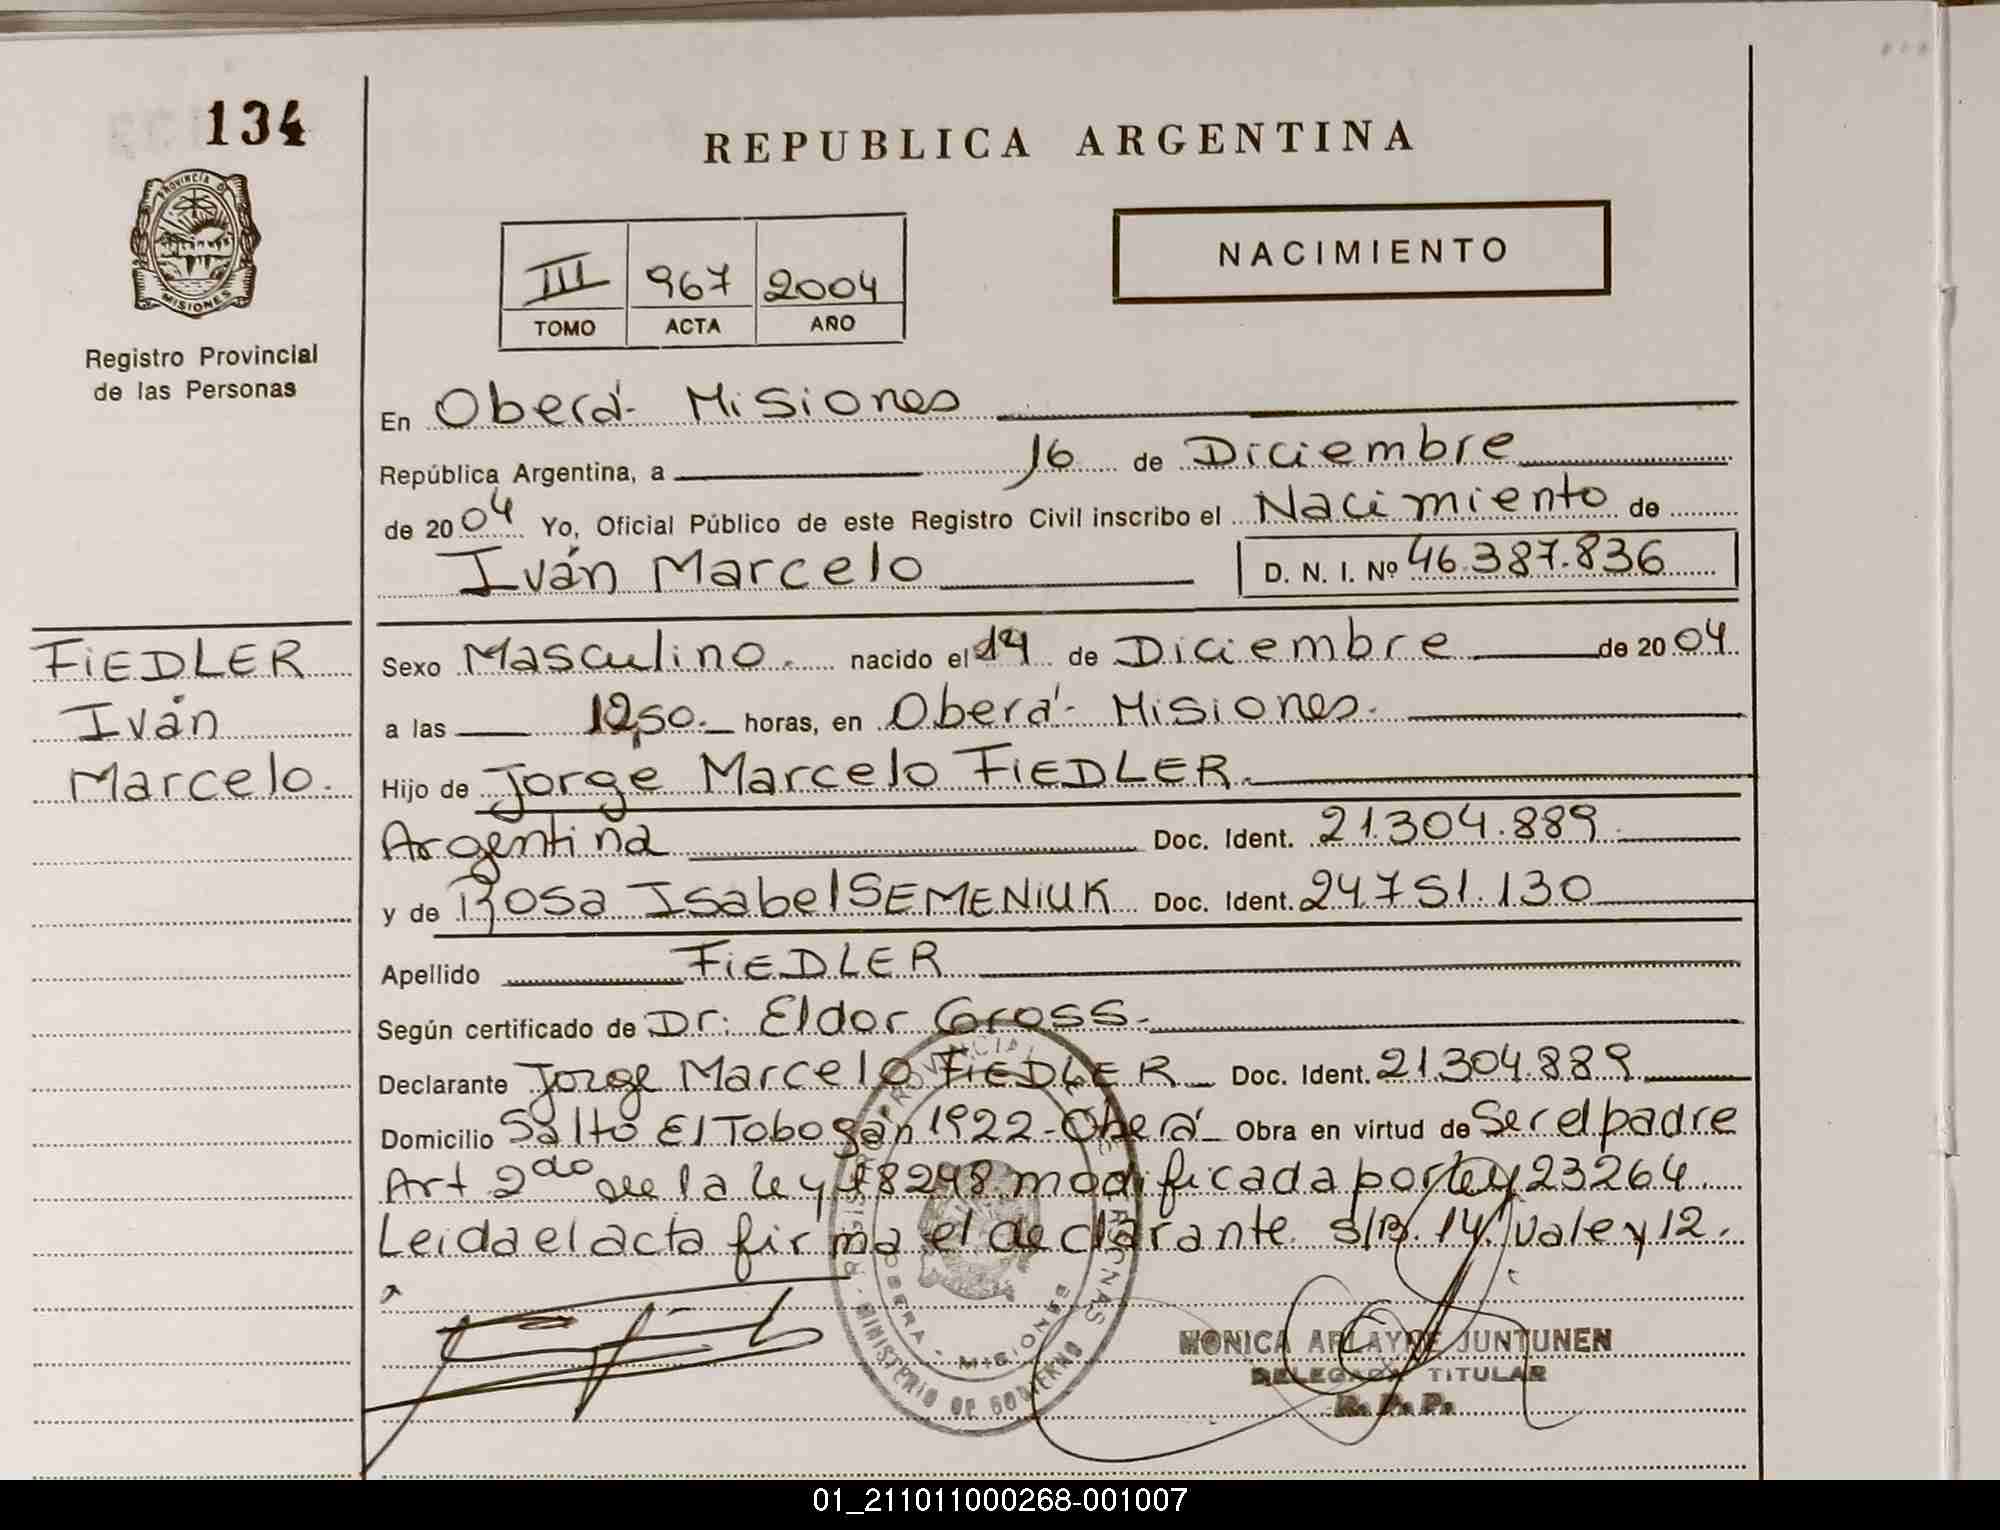 134
PROVINCIA DE
MISIONES
Registro Provincial
de las Personas
REPUBLICA ARGENTINA
NACIMIENTO
III 967 2004
TOMO ACTA AÑO
En Oberá - Misiones
República Argentina, a 16 de Diciembre
de 2004 Yo, Oficial Público de este Registro Civil inscribo el Nacimiento de
Iván Marcelo D. N. I. Nº 46.387.836
FIEDLER
Iván
Marcelo.
Sexo Masculino. nacido el 14 de Diciembre de 2004
a las 12,50. horas, en Oberá - Misiones.
Hijo de Jorge Marcelo FIEDLER.
Argentina Doc. Ident. 21.304.889.
y de Rosa Isabel SEMENIUK Doc. Ident. 24.751.130
Apellido FIEDLER
Según certificado de Dr. Eldor Gross.
Declarante Jorge Marcelo FIEDLER Doc. Ident. 21.304.889
Domicilio Salto El Tobogán 1922 - Oberá Obra en virtud de Ser el padre
Art 2do de la ley 18248 modificada por ley 23264
Leida el acta firma el declarante. S/B. 14. vale y 12.
REGISTRO PROVINCIAL DE LAS PERSONAS
OBERA - MISIONES
MINISTERIO DE GOBIERNO
MONICA ARLAYNE JUNTUNEN
DELEGADA TITULAR
R. P. P.
01_211011000268-001007